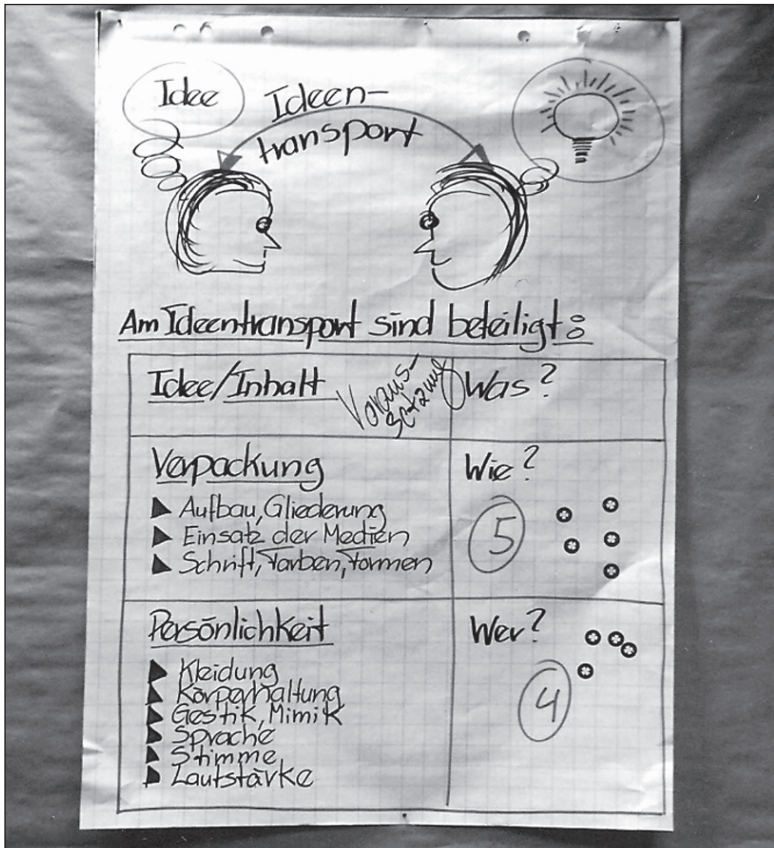 Idee
Ideen-
transport
Am Ideentransport sind beteiligt:
Idee/Inhalt
Voraus-
setzung
Was?
Verpackung
Wie?
Aufbau, Gliederung
Einsatz der Medien
Schrift, Farben, Formen
5
Persönlichkeit
Wer?
Kleidung
Körperhaltung
Gestik, Mimik
Sprache
Stimme
Lautstärke
4